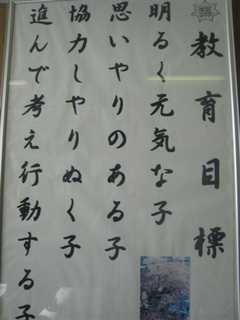 教育目標
明るく元気な子
思いやりのある子
協力しやりぬく子
進んで考え行動する子